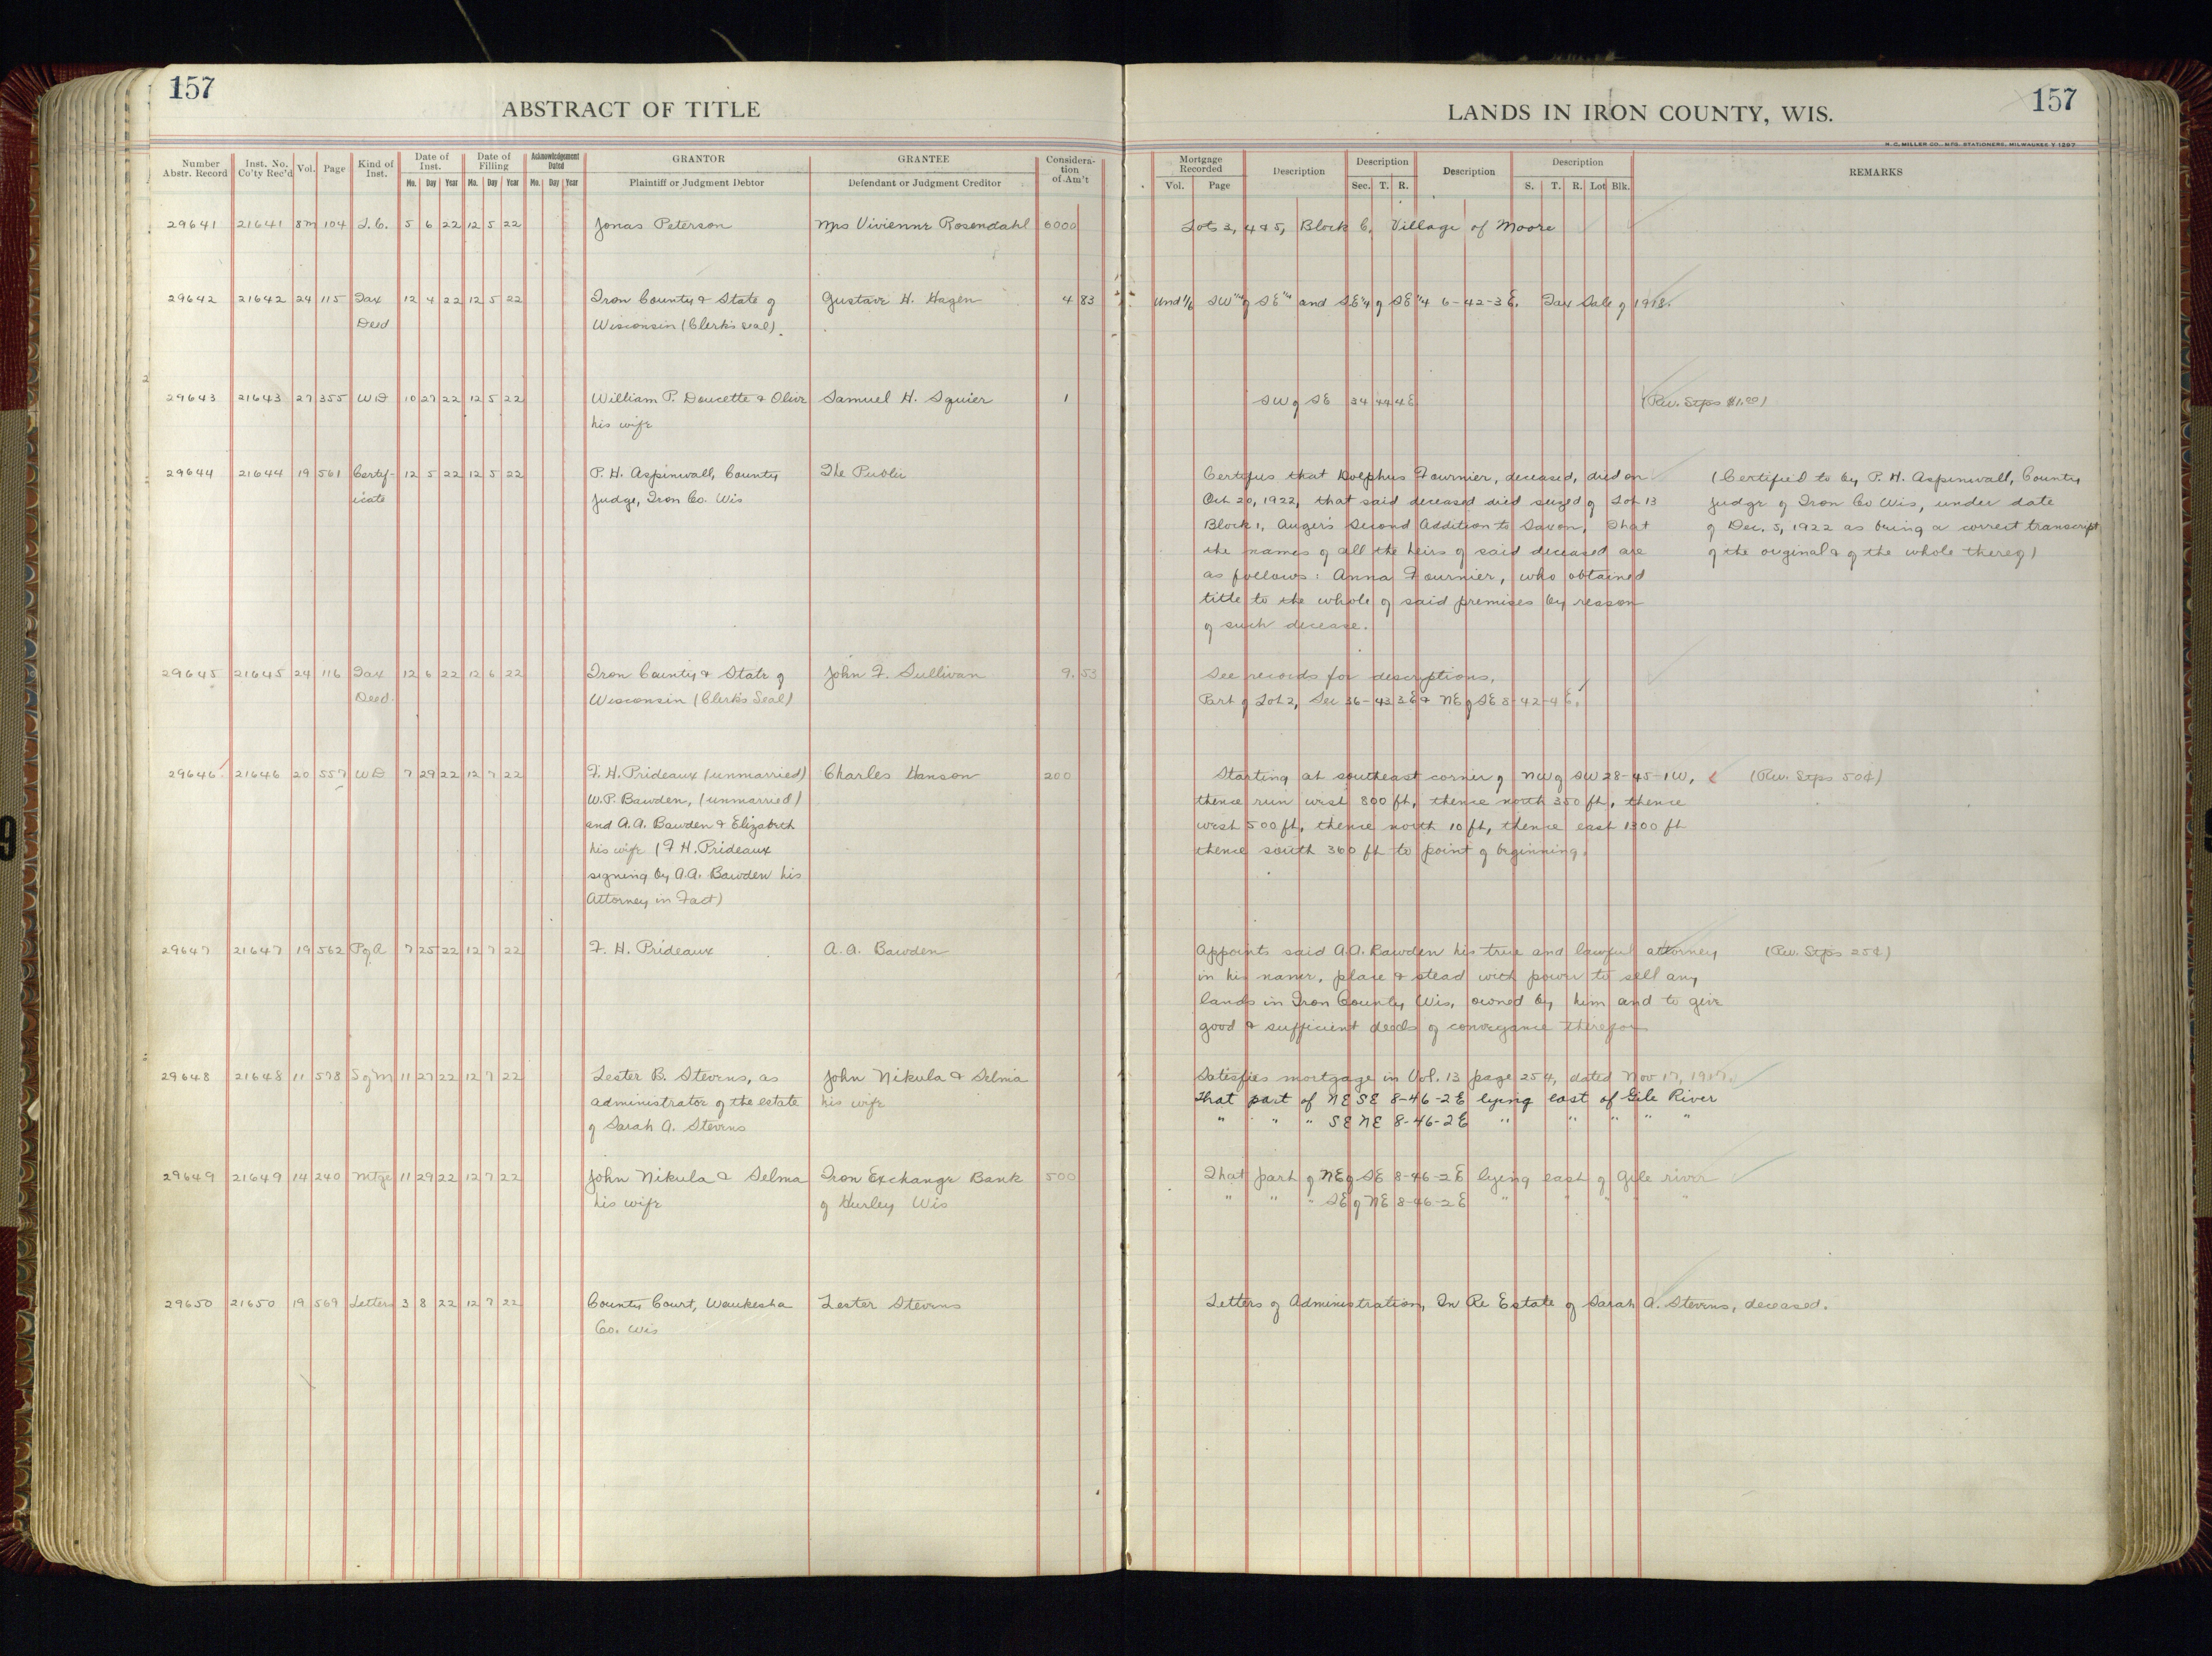 157
ABSTRACT OF TITLE
LANDS IN IRON COUNTY, WIS.
157
H. C. MILLER CO., MFG. STATIONERS, MILWAUKEE
Number Abstr. Record | Inst. No. Co'ty Rec'd | Vol. | Page | Kind of Inst. | Date of Inst. Mo. Day Year | Date of Filling Mo. Day Year | Acknowledgement Dated Mo. Day Year | GRANTOR Plaintiff or Judgment Debtor | GRANTEE Defendant or Judgment Creditor | Consideration of Am't
Mortgage Recorded Vol. Page | Description | Description Sec. T. R. | Description | Description S. T. R. Lot Blk. | REMARKS
29641 21641 8m 104 L.C. 5 6 22 12 5 22 Jonas Peterson Mrs Vivienne Rosendahl 6000 Lots 3, 4 & 5, Block 6, Village of Moore
29642 21642 24 115 Tax 12 4 22 12 5 22 Iron County & State of Gustave H. Hagen 4 83 Und 1/6 SW 1/4 of SE 1/4 and SE 1/4 of SE 1/4 6-42-3 E. Tax Sale of 1918.
Deed Wisconsin (Clerk's seal).
29643 21643 27 355 WD 10 27 22 12 5 22 William P. Doucette & Olive Samuel H. Squier 1 SW of SE 34 44 4E (Rev. Stps $1.00)
his wife
29644 21644 19 561 Certif- 12 5 22 12 5 22 P. H. Aspinwall, County The Public Certifies that Dolphus Fournier, deceased, died on (Certified to by P. H. Aspinwall, County
icate Judge, Iron Co. Wis Oct 20, 1922, that said deceased died seized of Lot 13 Judge of Iron Co Wis, under date
Block 1, Auger's Second Addition to Saxon, That of Dec. 5, 1922 as being a correct transcript
the names of all the heirs of said deceased are of the original & of the whole thereof)
as follows: Anna Fournier, who obtained
title to the whole of said premises by reason
of such decease.
29645 21645 24 116 Tax 12 6 22 12 6 22 Iron County & State of John F. Sullivan 9. 53 See records for descriptions,
Deed. Wisconsin (Clerk's Seal) Part of Lot 2, Sec 36-43 3E & NE of SE 8-42-4 E.
29646 21646 20 557 WD 7 29 22 12 7 22 F. H. Prideaux (unmarried) Charles Hanson 200 Starting at southeast corner of NW of SW 28-45-1W, (Rev. Stps 50¢)
W.P. Bawden, (unmarried) thence run west 800 ft, thence north 350 ft, thence
and A.A. Bawden & Elizabeth west 500 ft, thence north 10 ft, thence east 1300 ft
his wife (F H. Prideaux thence south 360 ft to point of beginning.
signing by A.A. Bawden his
Attorney in Fact)
29647 21647 19 562 P of A 7 25 22 12 7 22 F. H. Prideaux A. A. Bawden Appoints said A.A. Bawden his true and lawful attorney (Rev. Stps 25¢)
in his name, place & stead with power to sell any
lands in Iron County Wis, owned by him and to give
good & sufficient deeds of conveyance therefor
29648 21648 11 578 S of M 11 27 22 12 7 22 Lester B. Stevens, as John Nikula & Selma Satisfies mortgage in Vol. 13 page 254, dated Nov 17, 1917.
administrator of the estate his wife That part of NE SE 8-46-2E lying east of Gile River
of Sarah A. Stevens " " " SE NE 8-46-2E " " " " "
29649 21649 14 240 Mtge 11 29 22 12 7 22 John Nikula & Selma Iron Exchange Bank 500 That part of NE of SE 8-46-2E lying east of Gile river
his wife of Hurley Wis " " " SE of NE 8-46-2E " " " " "
29650 21650 19 569 Letters 3 8 22 12 7 22 County Court, Waukesha Lester Stevens Letters of Administration, In Re Estate of Sarah A. Stevens, deceased.
Co. Wis